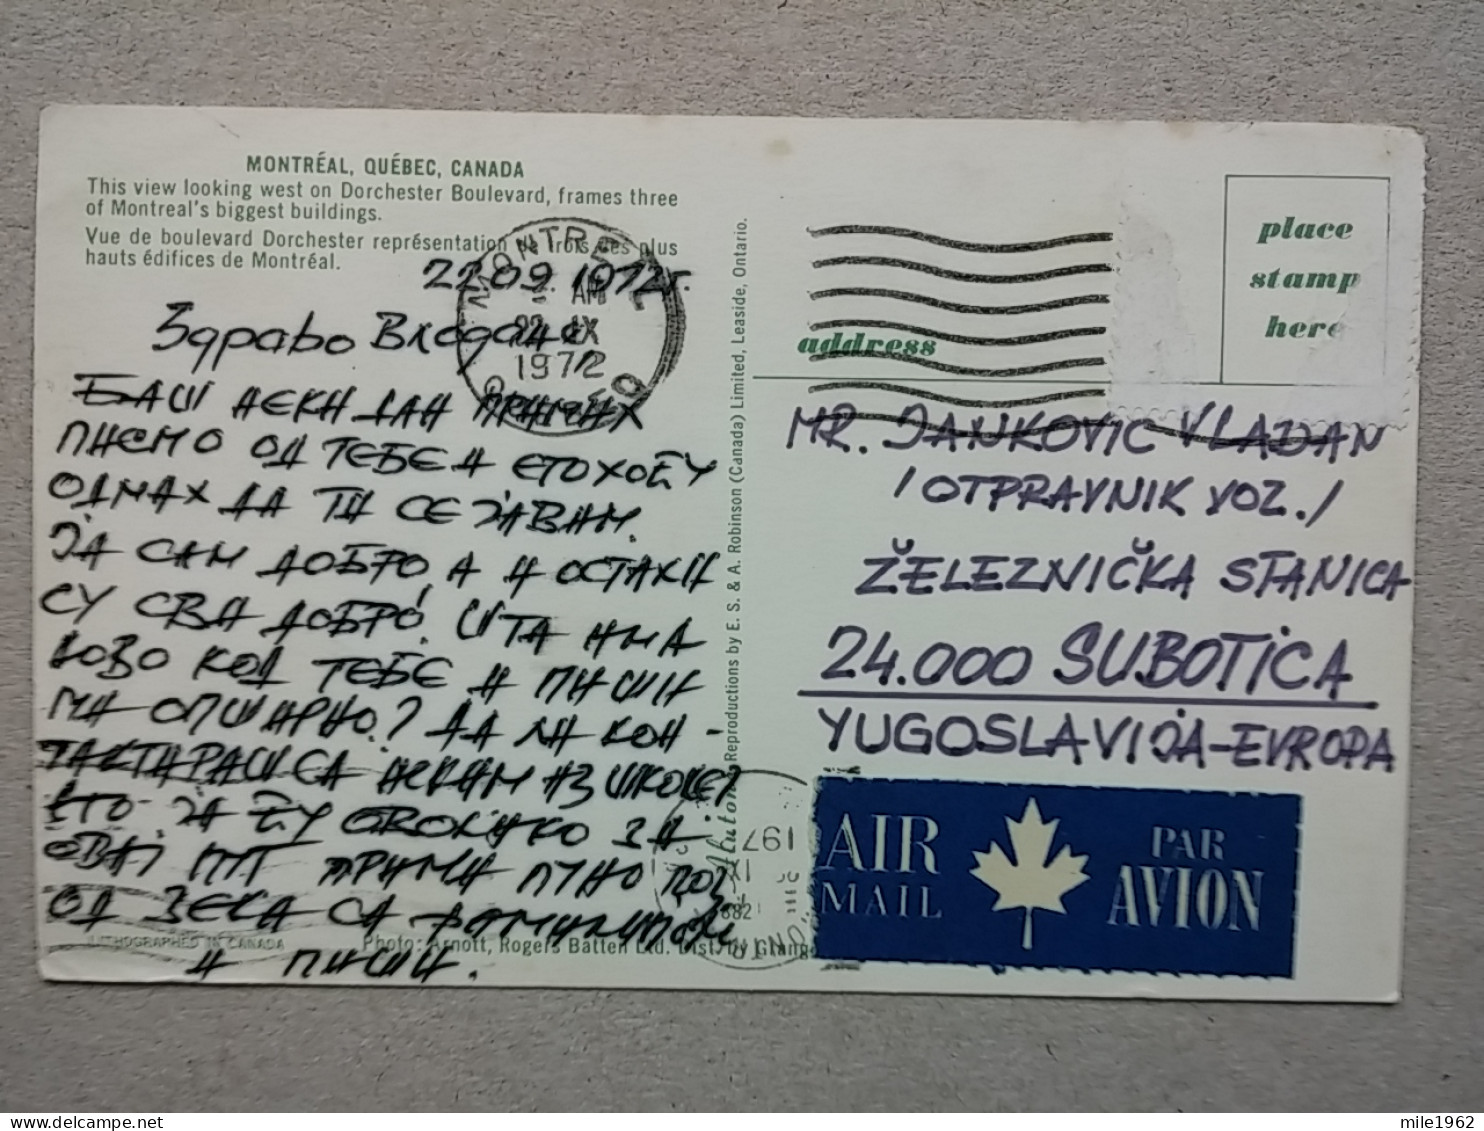 MONTRÉAL, QUÉBEC, CANADA
This view looking west on Dorchester Boulevard, frames three
of Montreal's biggest buildings.
Vue de boulevard Dorchester représentation de trois des plus
hauts édifices de Montréal.
22.09.1972г.
MONTREAL
AM
22 IX
1972
Здраво Владане,
БАШ НЕКИ ДАН ПРИМИХ
ПИСМО ОД ТЕБЕ И ЕТО ХОЋУ
ОДМАХ ДА ТИ СЕ ЈАВИМ.
ЈА САМ ДОБРО А И ОСТАЛИ
СУ СВИ ДОБРО. ШТА ИМА
НОВО КОД ТЕБЕ И ПИШИ
МИ ОПШИРНО? ДА ЛИ КОН-
ТАКТИРАШ СА НЕКИМ ИЗ ШКОЛЕ?
ЕТО ЈА ЋУ ОВОЛИКО ЗА
ОВАЈ ПУТ ПРИМИ ПУНО ПОЗ.
ОД ЗЕКА СА ФАМИЛИЈОМ
И ПИШИ.
LITHOGRAPHED IN CANADA
Photo: Arnott, Rogers Batten Ltd. Dist. by
Reproductions by E. S. & A. Robinson (Canada) Limited, Leaside, Ontario.
place
stamp
here
address
MR. JANKOVIC VLADAN
/OTPRAVNIK VOZ./
ŽELEZNIČKA STANICA
24.000 SUBOTICA
YUGOSLAVIJA-EVROPA
AIR
MAIL
PAR
AVION
mile1962